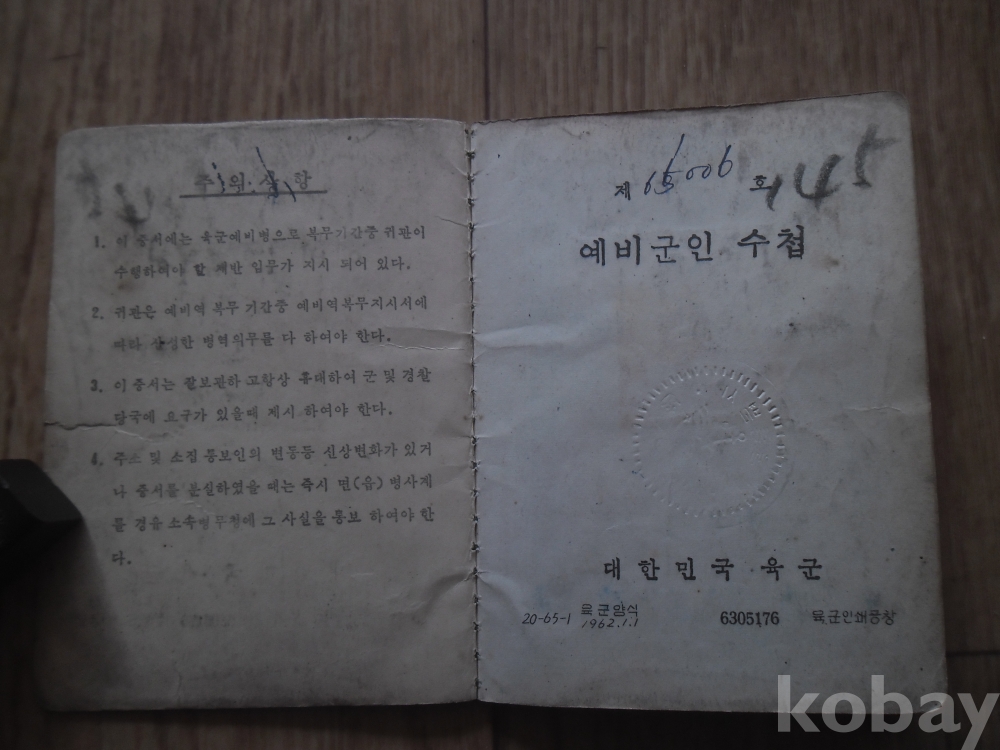 주 의 사 항
1. 이 증서에는 육군예비병으로 복무기간중 귀관이
수행하여야 할 제반 임무가 지시 되어 있다.
2. 귀관은 예비역 복무 기간중 예비역복무지시서에
따라 상성한 병역의무를 다 하여야 한다.
3. 이 증서는 잘보관하 고항상 휴대하여 군 및 경찰
당국에 요구가 있을때 제시 하여야 한다.
4. 주소 및 소집통보인의 변동등 신상변화가 있거
나 증서를 분실하였을 때는 즉시 면(읍) 병사계
를 경유 소속병무청에 그 사실을 통보 하여야 한
다.
제 호 145
예비군인 수첩
대한민국 육군
20-65-1 육군양식
1962.1.1
6305176 육군인쇄공창
kobay